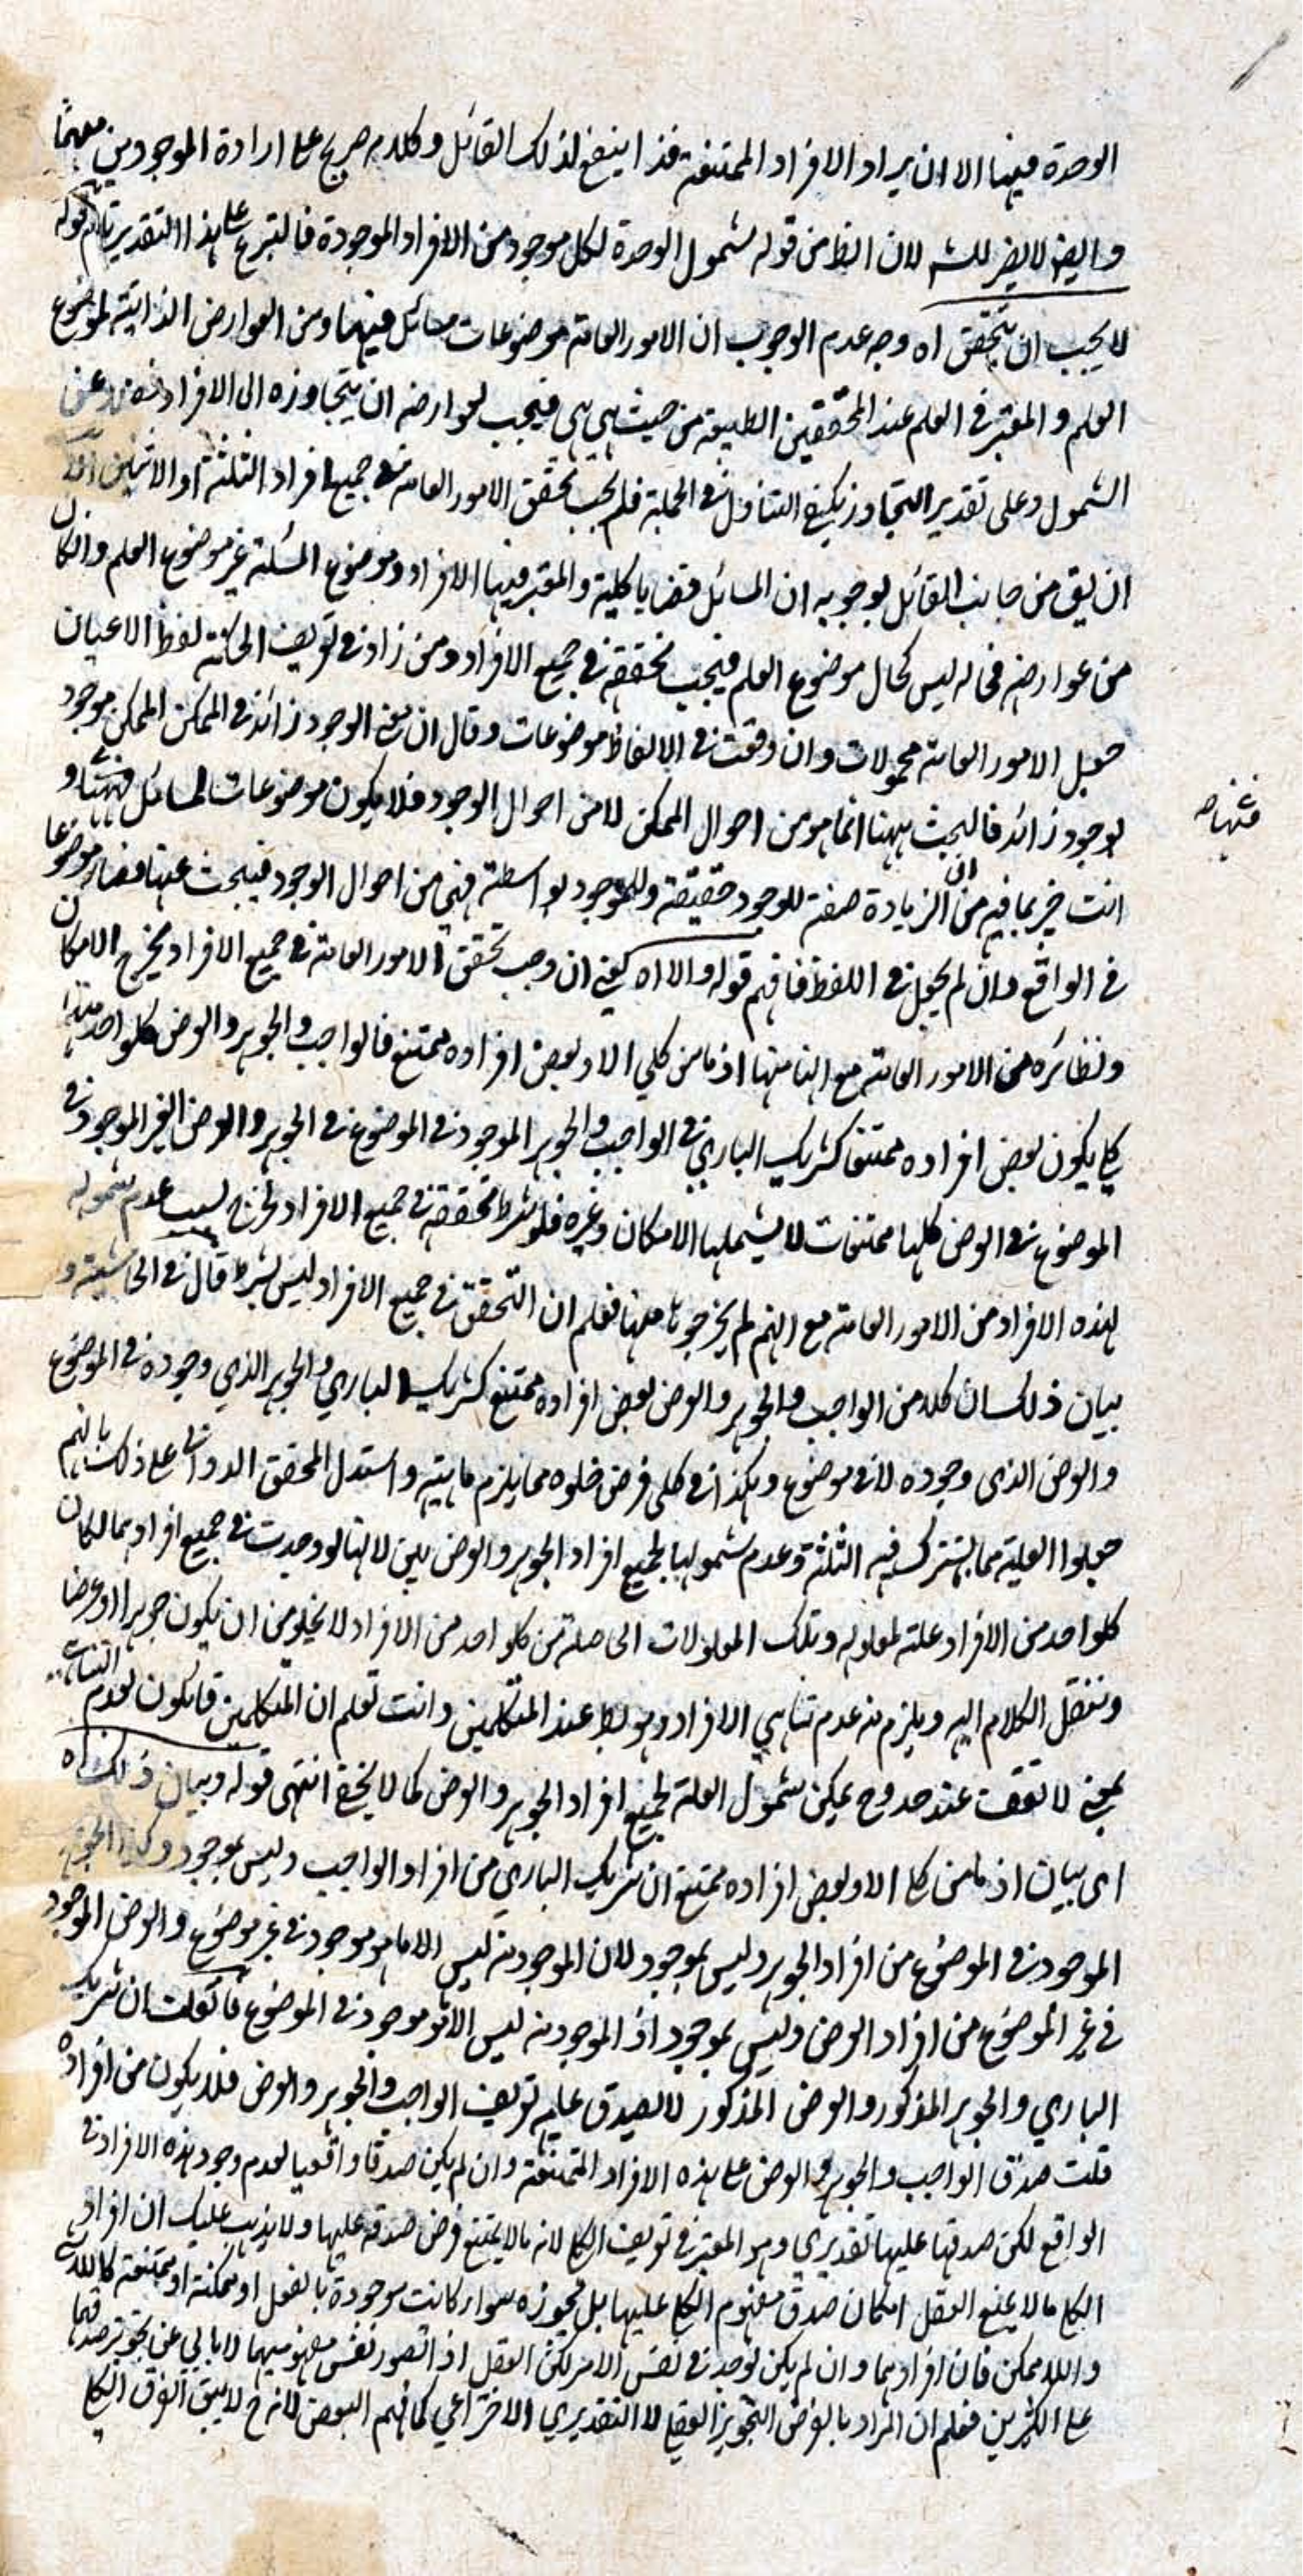 الوحدة فيهما الا ان يراد الافراد الممتنعة فذا ينفع لذلك القائل وكلامه صريح على ارادة الموجود من مفهمها
وايضا لا يضر للشـ لان الظ من قوله شمول الوحدة لكل موجود من الافراد الموجودة فالتبرع على هذا التقدير تام قوله
لا يجب ان يتحقق اه وجه عدم الوجوب ان الامور العامة موضوعات مسائل فيهما ومن العوارض الذاتية لموضوع
العلم والمعتبر في العلم عند المحققين الطبيعة من حيث هي هي فيجب لعوارضه ان يتجاوزه الى الافراد فضلا عن
الشمول وعلى تقدير التجاوز يكفي التناول في الجملة فلم يجب تحقق الامور العامة في جميع افراد الثلثة او الاثنين الا
ان يق من جانب القائل بوجوبه ان المسائل قضايا كلية والمعتبر فيها الافراد وموضوع المسئلة غير موضوع العلم وان كان
من عوارضه فحاله ليس كحال موضوع العلم فيجب تحققه في جميع الافراد ومن زاد في تعريف الحكمة لفظ الاعيان
جعل الامور العامة محمولات وان وقعت في الالفاظ موضوعات وقال ان معنى الوجود زائد في الممكن الممكن موجود
بوجود زائد فالبحث ههنا انما هو من احوال الممكن لا من احوال الوجود فلا يكون موضوعات لمسائل فهمتها و
انت خبير بما فيه من ان الزيادة صفة للوجود حقيقة وللموجود بواسطة فهي من احوال الوجود فيبحث عنها فصار موضوعا
في الواقع وان لم يجعل في اللفظ فافهم قوله والا اه يعني ان وجب تحقق الامور العامة في جميع الافراد يخرج الامكان
ونظائره من الامور العامة مع انها منها اذ ما من كلي الا وبعض افراده ممتنع فالواجب والجوهر والعرض كلواحد منها
كلي يكون بعض افراده ممتنعا كشريك الباري في الواجب والجوهر الموجود في الموضوع في الجوهر والعرض الغير الموجود في
الموضوع في العرض كلها ممتنعات لا يشملها الامكان وغيره فلو شرط تحققه في جميع الافراد لخرج بسبب عدم شموله
لهذه الافراد من الامور العامة مع انهم لم يخرجوها منها فعلم ان التحقق في جميع الافراد ليس بشرط قال في الحاشية و
بيان ذلك ان كلا من الواجب والجوهر والعرض بعض افراده ممتنع كشريك الباري والجوهر الذي وجوده في الموضوع
والعرض الذي وجوده لا في موضوع وهكذا في كلي فرض خلوه مما يلزم ماهيته واستدل المحقق الدواني على ذلك بانهم
جعلوا العلية مما يشترك فيه الثلثة وعدم شمولها لجميع افراد الجوهر والعرض بين لانها لو وجدت في جميع افرادهما لكان
كلواحد من الافراد علة لمعلوله وتلك المعلولات الحاصلة من كلواحد من الافراد لا يخلو من ان يكون جوهرا او عرضا
وننقل الكلام اليه ويلزم منه عدم تناهي الافراد وهو بط عند المتكلمين وانت تعلم ان المتكلمين قائلون بعدم التناهي
بمعنى لا تقف عند حد وح يمكن شمول العلة لجميع افراد الجوهر والعرض كما لا يخفى انتهى قوله وبيان ذلك اه
اى بيان اذ ما من كلي الا وبعض افراده ممتنع ان شريك الباري من افراد الواجب وليس بموجود وكذا الجوهر
الموجود في الموضوع من افراد الجوهر وليس بموجود لان الموجود منه ليس الا ما هو موجود في غير موضوع والعرض الموجود
في غير الموضوع من افراد العرض وليس بموجود اذ الموجود منه ليس الا هو موجود في الموضوع فان قلت ان شريك
الباري والجوهر المذكور والعرض المذكور لا يصدق عليه تعريف الواجب والجوهر والعرض فلا يكون من افراده
قلت صدق الواجب والجوهر والعرض على هذه الافراد الممتنعة وان لم يكن صدقا واقعيا لعدم وجود هذه الافراد في
الواقع لكن صدقها عليها تقديري وهو المعتبر في تعريف الكلي لانه ما لا يمتنع فرض صدقه عليها ولا يذهب عليك ان افراد
الكلي ما لا يمنع العقل امكان صدق مفهوم الكلي عليها بل يجوزه سواء كانت موجودة بالفعل او ممكنة او ممتنعة كاللاشئ
واللاممكن فان افرادهما وان لم يكن توجد في نفس الامر لكن العقل اذا تصور نفس مفهوميهما لا يابى عن تجويز صدقهما
على الكثيرين فعلم ان المراد بالفرض التجويز العقلي لا التقديري الاختراعي كما فهم البعض لانه ح لا يبقى الفرق الكلي